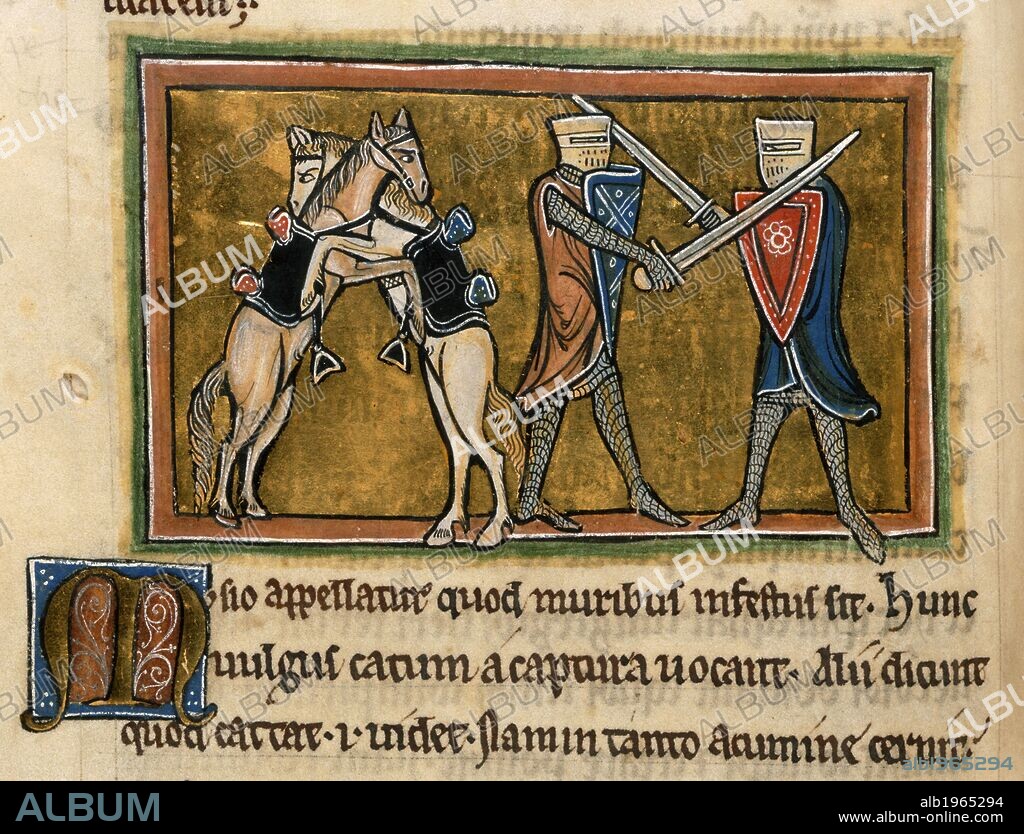 Musio appellatur quod muribus infestus sit. Hunc
vulgus catum a captura uocant. Alii dicunt
quod cattat .i. uidet. Nam in tanto acumine cernit.
ALBUM
alb1965294
ALBUM
alb1965294
www.album-online.com